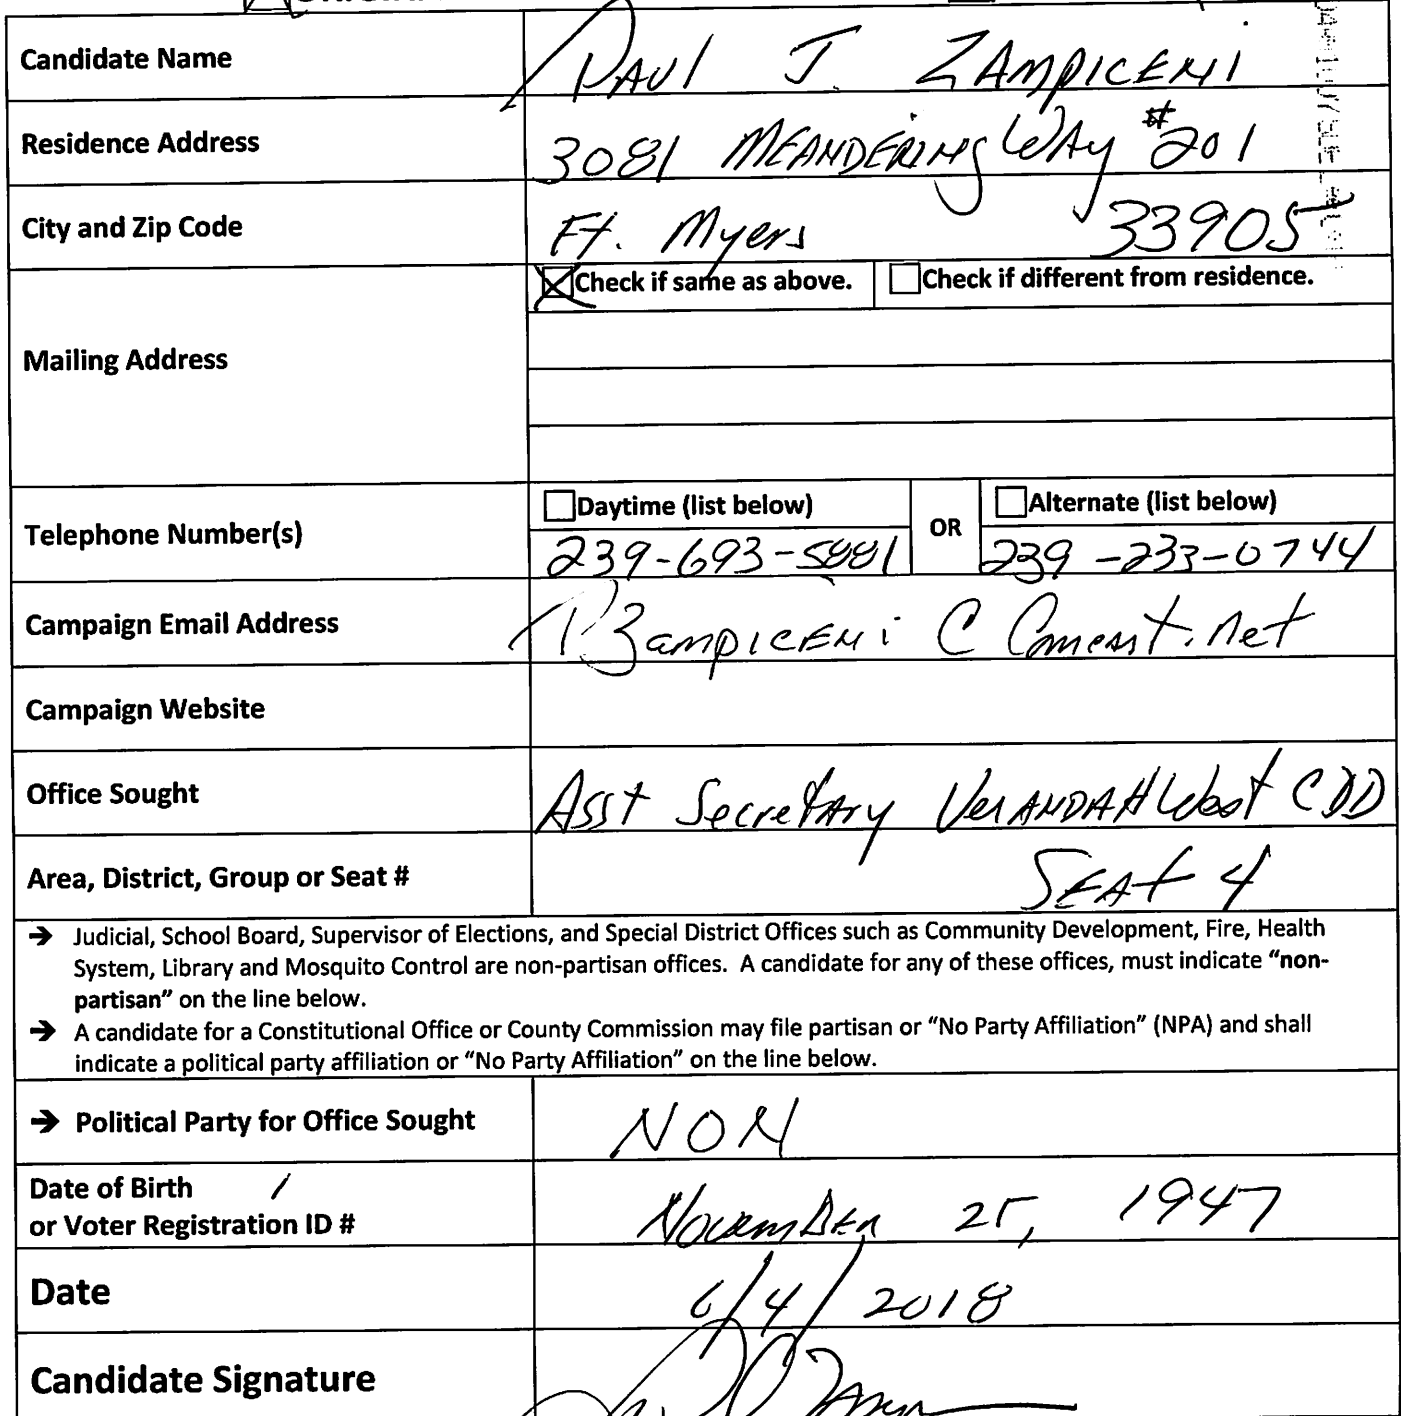 Candidate Name
PAUL J. ZAMPICENI
Residence Address
3081 MEANDERING WAY #201
City and Zip Code
Ft. Myers 33905
Check if same as above. Check if different from residence.
Mailing Address
Telephone Number(s)
Daytime (list below) OR Alternate (list below)
239-693-5881 239-233-0744
Campaign Email Address
PZampiceni C Comcast.net
Campaign Website
Office Sought
Asst Secretary VerANDAH West CDD
Area, District, Group or Seat #
SEAt 4
→ Judicial, School Board, Supervisor of Elections, and Special District Offices such as Community Development, Fire, Health
System, Library and Mosquito Control are non-partisan offices. A candidate for any of these offices, must indicate “non-
partisan” on the line below.
→ A candidate for a Constitutional Office or County Commission may file partisan or “No Party Affiliation” (NPA) and shall
indicate a political party affiliation or “No Party Affiliation” on the line below.
→ Political Party for Office Sought
NON
Date of Birth /
or Voter Registration ID #
November 25, 1947
Date
6/4/2018
Candidate Signature